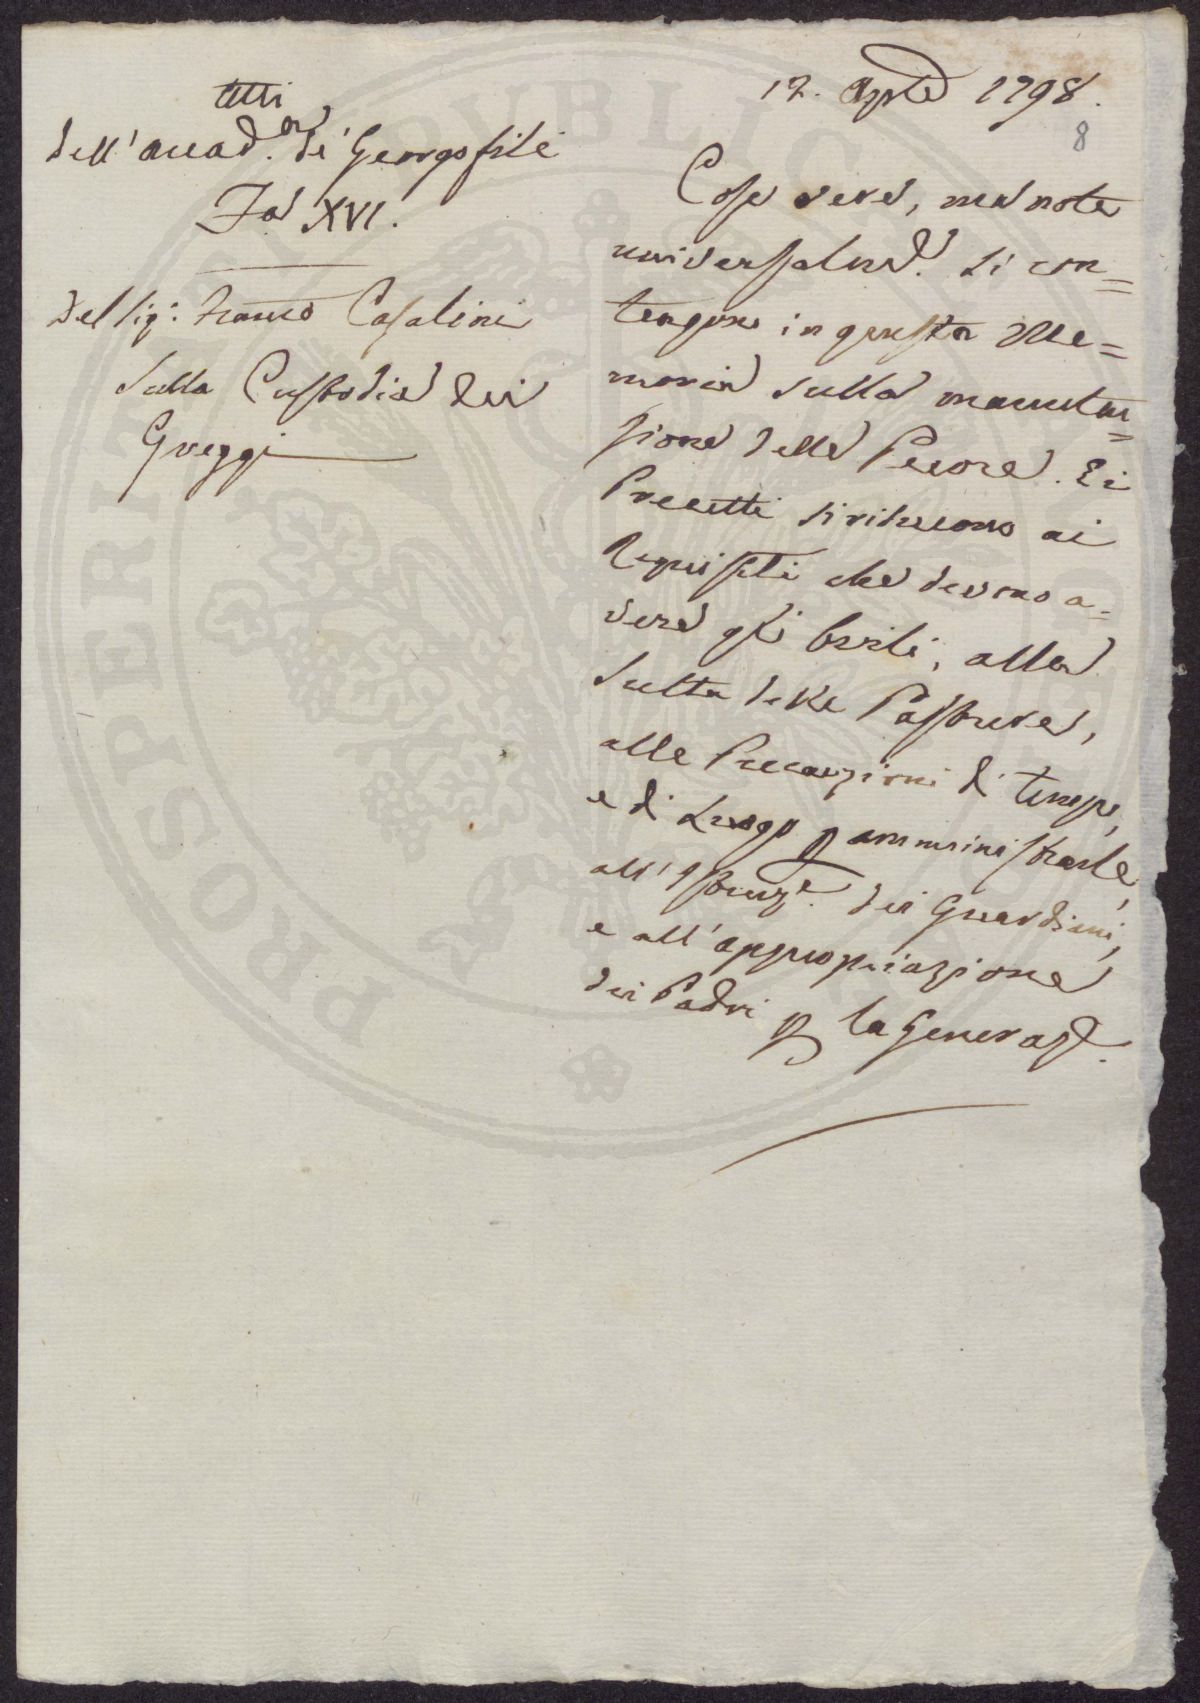 Atti
dell'accad.ª de' Georgofili
Fa XVI.
Del Sig: Franco Casalini
Sulla Custodia dei
Greggi
12. Aple 1798.
8
Cose vere, ma note
universalme. si con=
tengono in questa Me=
moria sulla manuten=
sione delle Pecore. Ei
Precetti si riducono ai
Requisiti che devono a=
vere gli Ovili, alla
scelta delle Pasture,
alle Precauzioni di tempo,
e di Luogo p amministrarle,
all'Istruze. dei Guardiani,
e all'appropriazione
dei Padri p la Generaze.
PROSPERITATI PUBLICAE